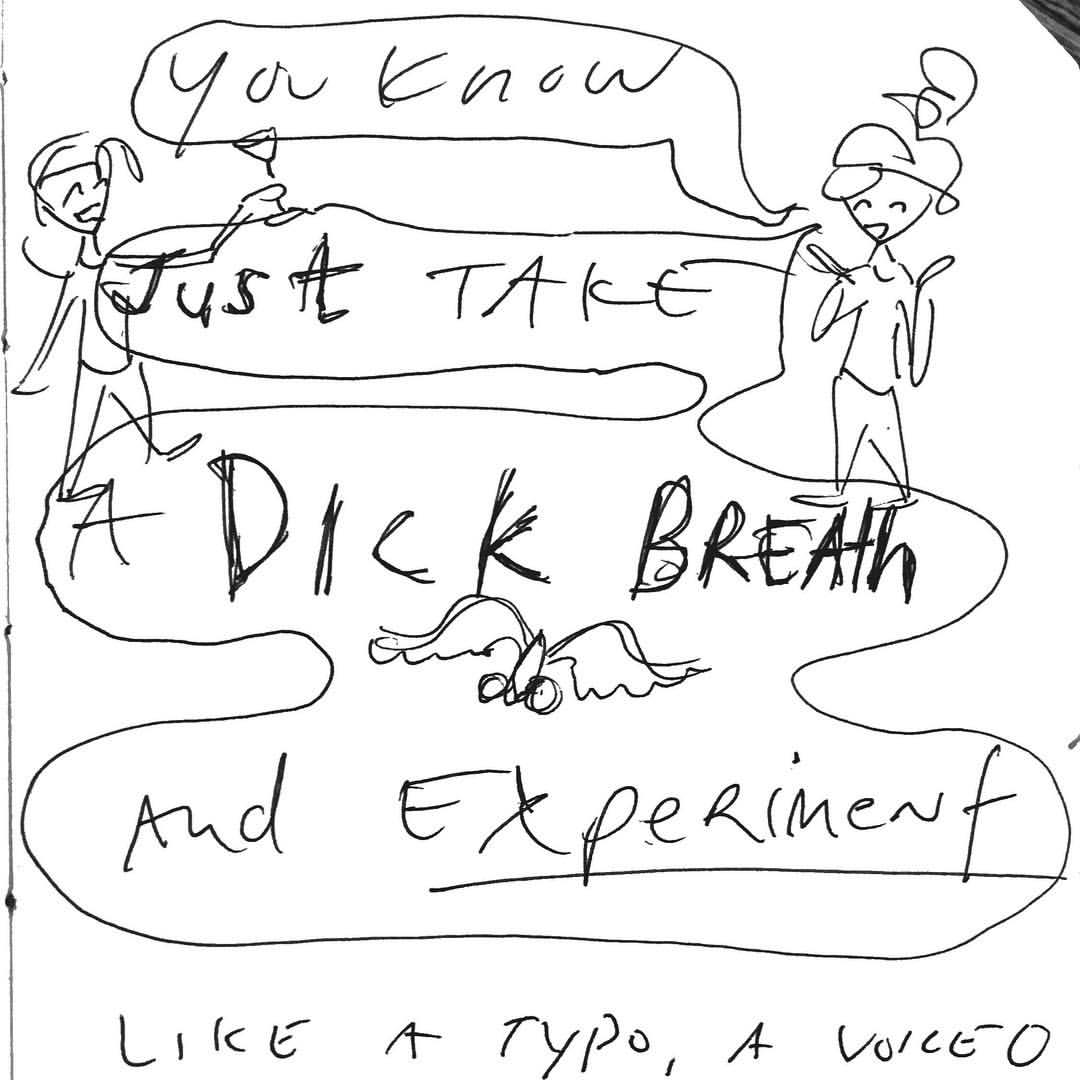 You Know
Just TAKE
A DICK BREATh
And ExpeRiment
LIKE A TYPO, A VOICEO